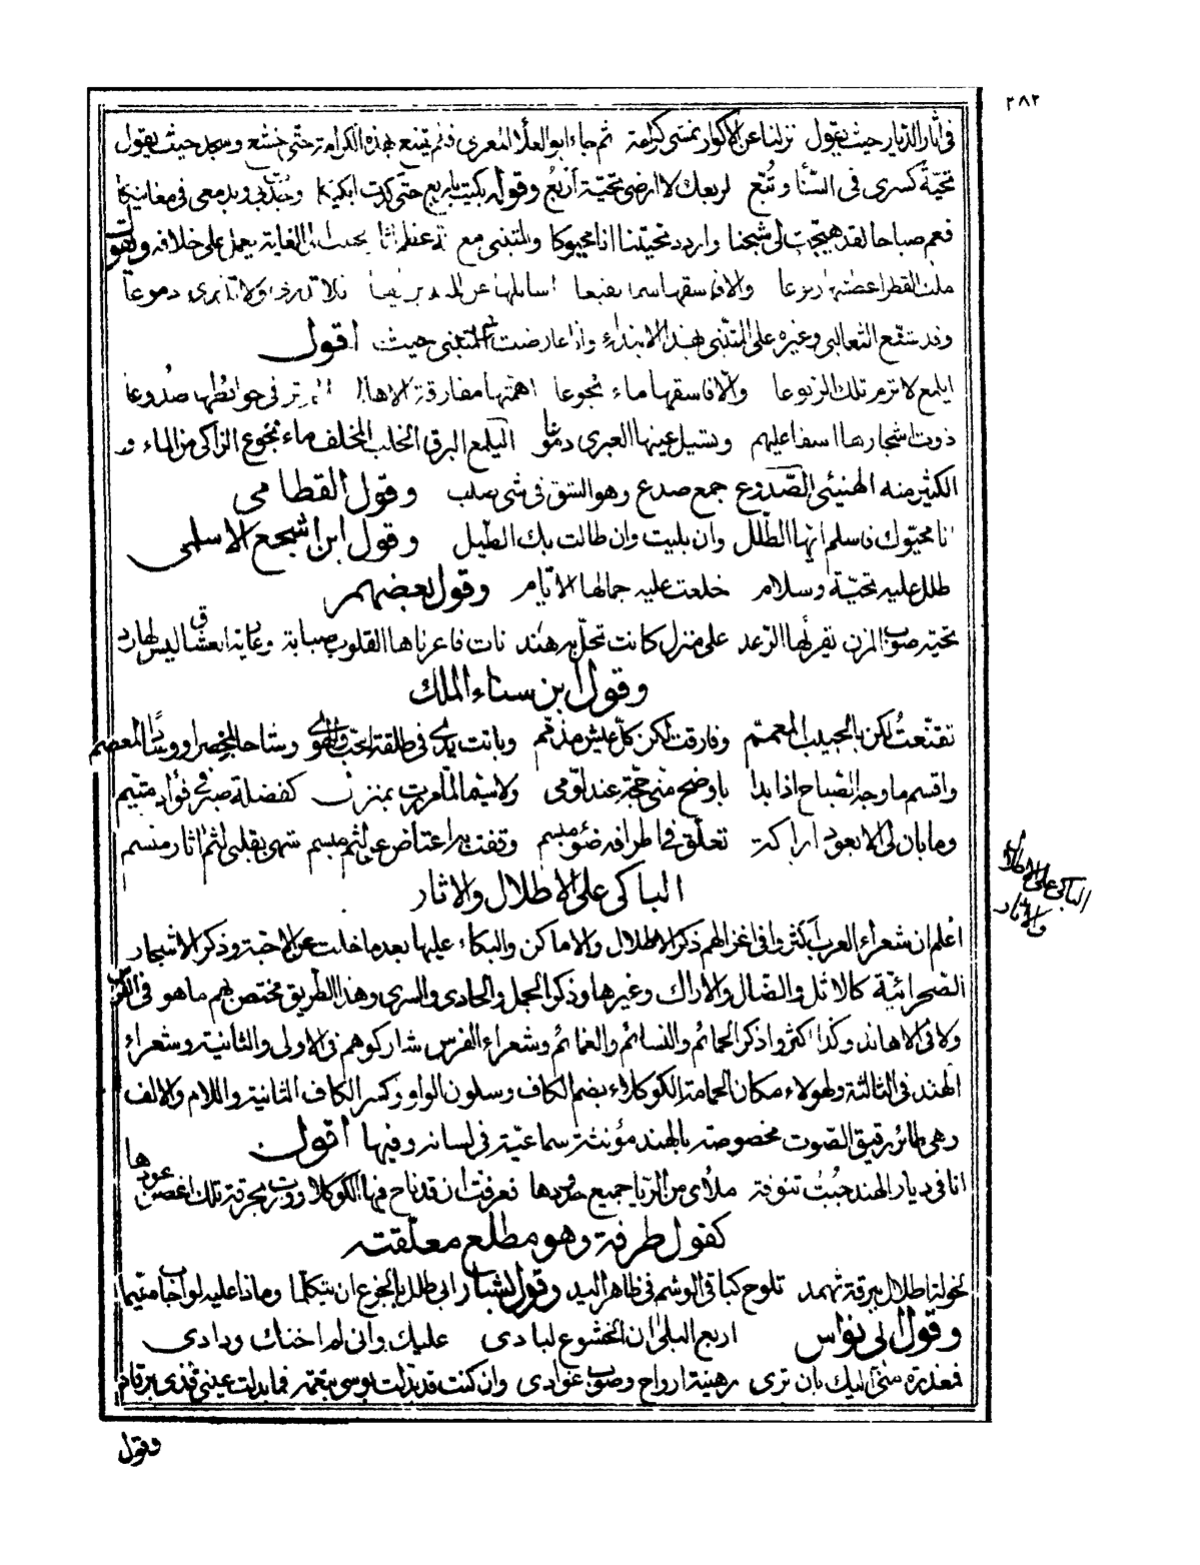 ٢٨٢
في آثار الديار حيث يقول نزلنا عن الأكوار نمشي كرامة ثم جاء ابو العلاء المعري فلم يقنع بهذه الكرامة حتى خشع وسجد حيث يقول
تحيّة كسرى في السنا وتُبّع لربعك لا ارضى تحيّة أربُعِ وقوله بكيت ياربع حتى كدت ابكيكا وجُدت بي وبدمعي في مغانيكا
فعم صباحا لقد هيّجت لي شجنا واردد تحيّتنا انا محيوكا والمتنبي مع يعمل على خلافه ويقول
ملث القطر اعطشها ربوعا والا فاسقها السم النقيعا اسائلها عن المتديريها فلا تدري ولا تذري دموعا
وقد شنّع الثعالبي وغيره على المتنبي بهذا الابتداء وانا عارضت المتنبي حيث اقول
ايلمع لا ترم تلك الربوعا والّا فاسقها ماء نجوعا اهمّتها مفارقة الاهالي الم تر في حوائطها صُدُوعا
ذوت اشجارها اسفا عليهم وتسيل عينها العبرى دموعا اليلمع البرق الخلب المخلف ماء نجوع الزاكي من الماء و
الكثير منه الهنيئي الصّدوع جمع صدع وهو الشق في شي صلب وقول القطامي
انا محيّوك فاسلم ايها الطّلل وان بليت وان طالت بك الطّيل وقول ابن اشجع الاسلمي
طلل عليه تحيّة وسلام خلعت عليه جمالها الايّام وقول بعضهم
تحية صوب المزن يقرئها الرّعد على منزل كانت تحلّ به هند نأت فاعرناها القلوب صبابة وعارية العشاق ليس لها رد
وقول ابن سناء الملك
تقنّعتُ لكن بالحبيب المعمّم وفارقت لكن كلّ عيش مذمّم وباتت يدي في طاعة الحب والهوى وشاحا لخصر او سوارا لمعصم
واقسم ما وجه الصّباح اذا بدا باوضح منّي حجّة عند لوّمي ولا سيّما لمّا مررت بمنزل كفضلة صبر في فؤاد متيّم
وما بان لي الا بعود اراكة تعلّق في اطرافه ضوء مبسم وقفت به اعتاض عن لثم مبسم شهيّ بقلبي لثم اثار منسم
الباكي على الاطلال والاثار
اعلم ان شعراء العرب أكثروا في اغزالهم ذكر الاطلال والاماكن والبكاء عليها بعد ما خلت عن الاحبّة وذكر الاشجار
الصّحرائيّة كالاثل والضّال والاراك وغيرها وذكر الجمل والحادي والسرى وهذا الطريق مختصّ بهم ما هو في الفرس
ولا في الاهاند وكذا اكثروا ذكر الحمائم والنسائم والغمائم وشعراء الفرس شاركوهم في الاولى والثانية وشعراء
الهند في الثالثة ولهولاء مكان الحمامة الكوكلاء بضم الكاف وسكون الواو وكسر الكاف الثانية واللام والالف
وهي طائر رقيق الصّوت مخصوصة بالهند مؤنثة سماعيّة في لسانه وفيها اقول
انا في ديار الهند جُبْتُ تنوفة ملأى من الريّا جميع فعرفت ان قد ناح فيها الكوكلا وروت بحرقة تلك اغصن عودها
كقول طرفة وهو مطلع معلّقته
لخولة اطلال ببرقة ثهمد تلوح كباقي الوشم في ظاهر اليد وقول بشار ابى طلل بالجزع ان يتكلّما وماذا عليه لو اجاب متيّما
وقول ابي نواس اربع البلى ان الخشوع لبادي عليك واني لم اخنك ودادي
فمعذرة منّي اليك بان ترى رهينة ارواح وصوب غوادي وان كنت قد بدلت بوسى بنعمة فما بدلت عيني قذى برقاد
وقول
الباكي على الاطلال
والاثار